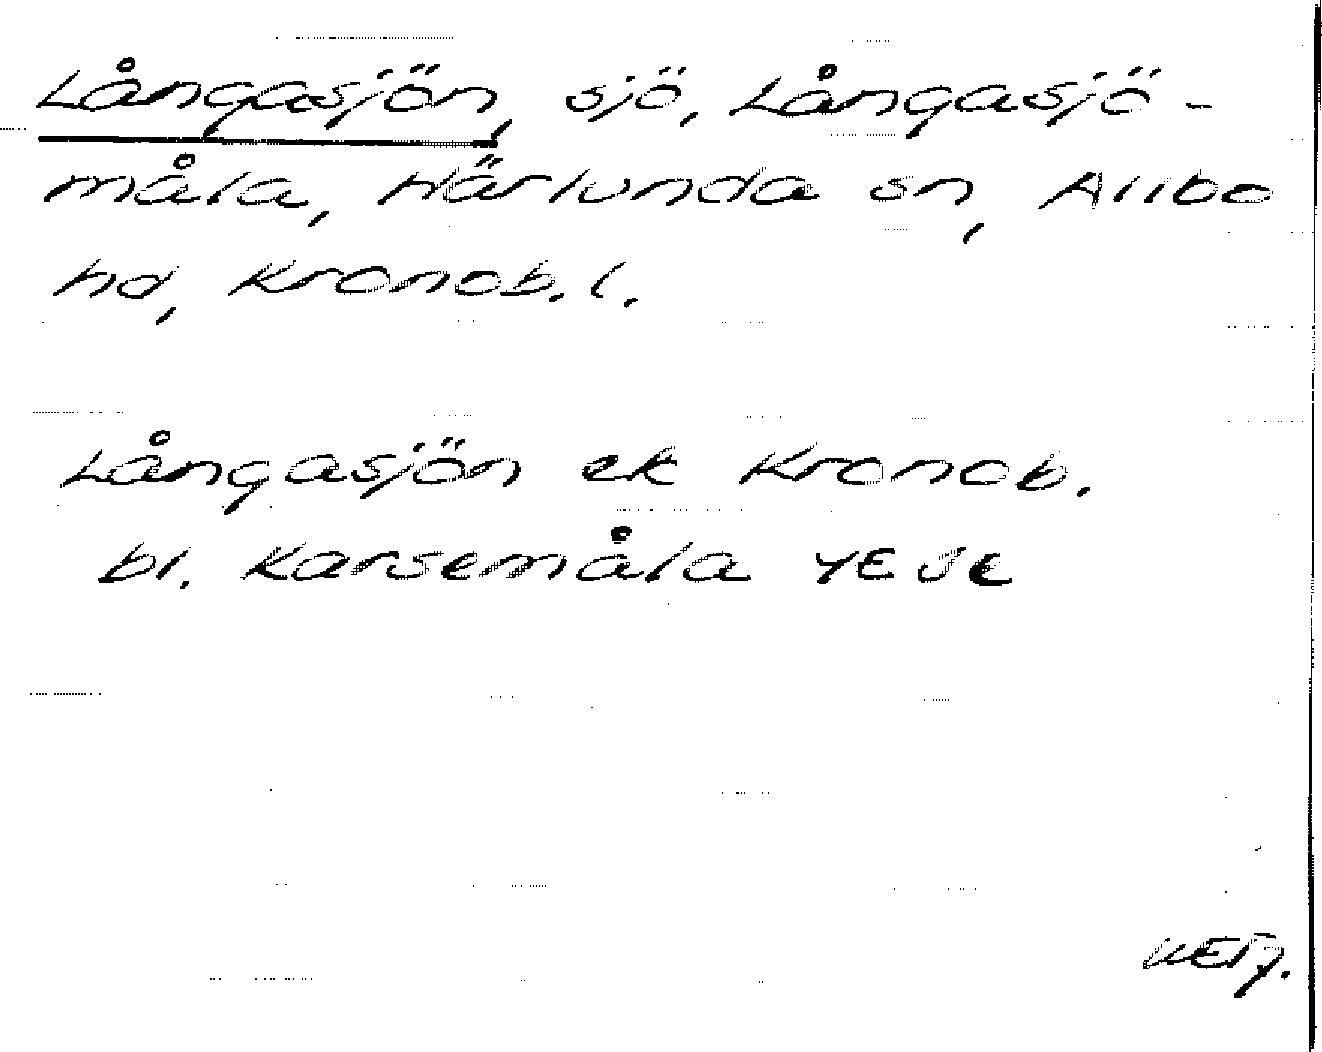 Långasjön, sjö, Långasjö-
måla, Härlunda sn, Allbo
hd, Kronob. l.
Långasjön ek Kronob.
bl. Karsemåla 4E 5e